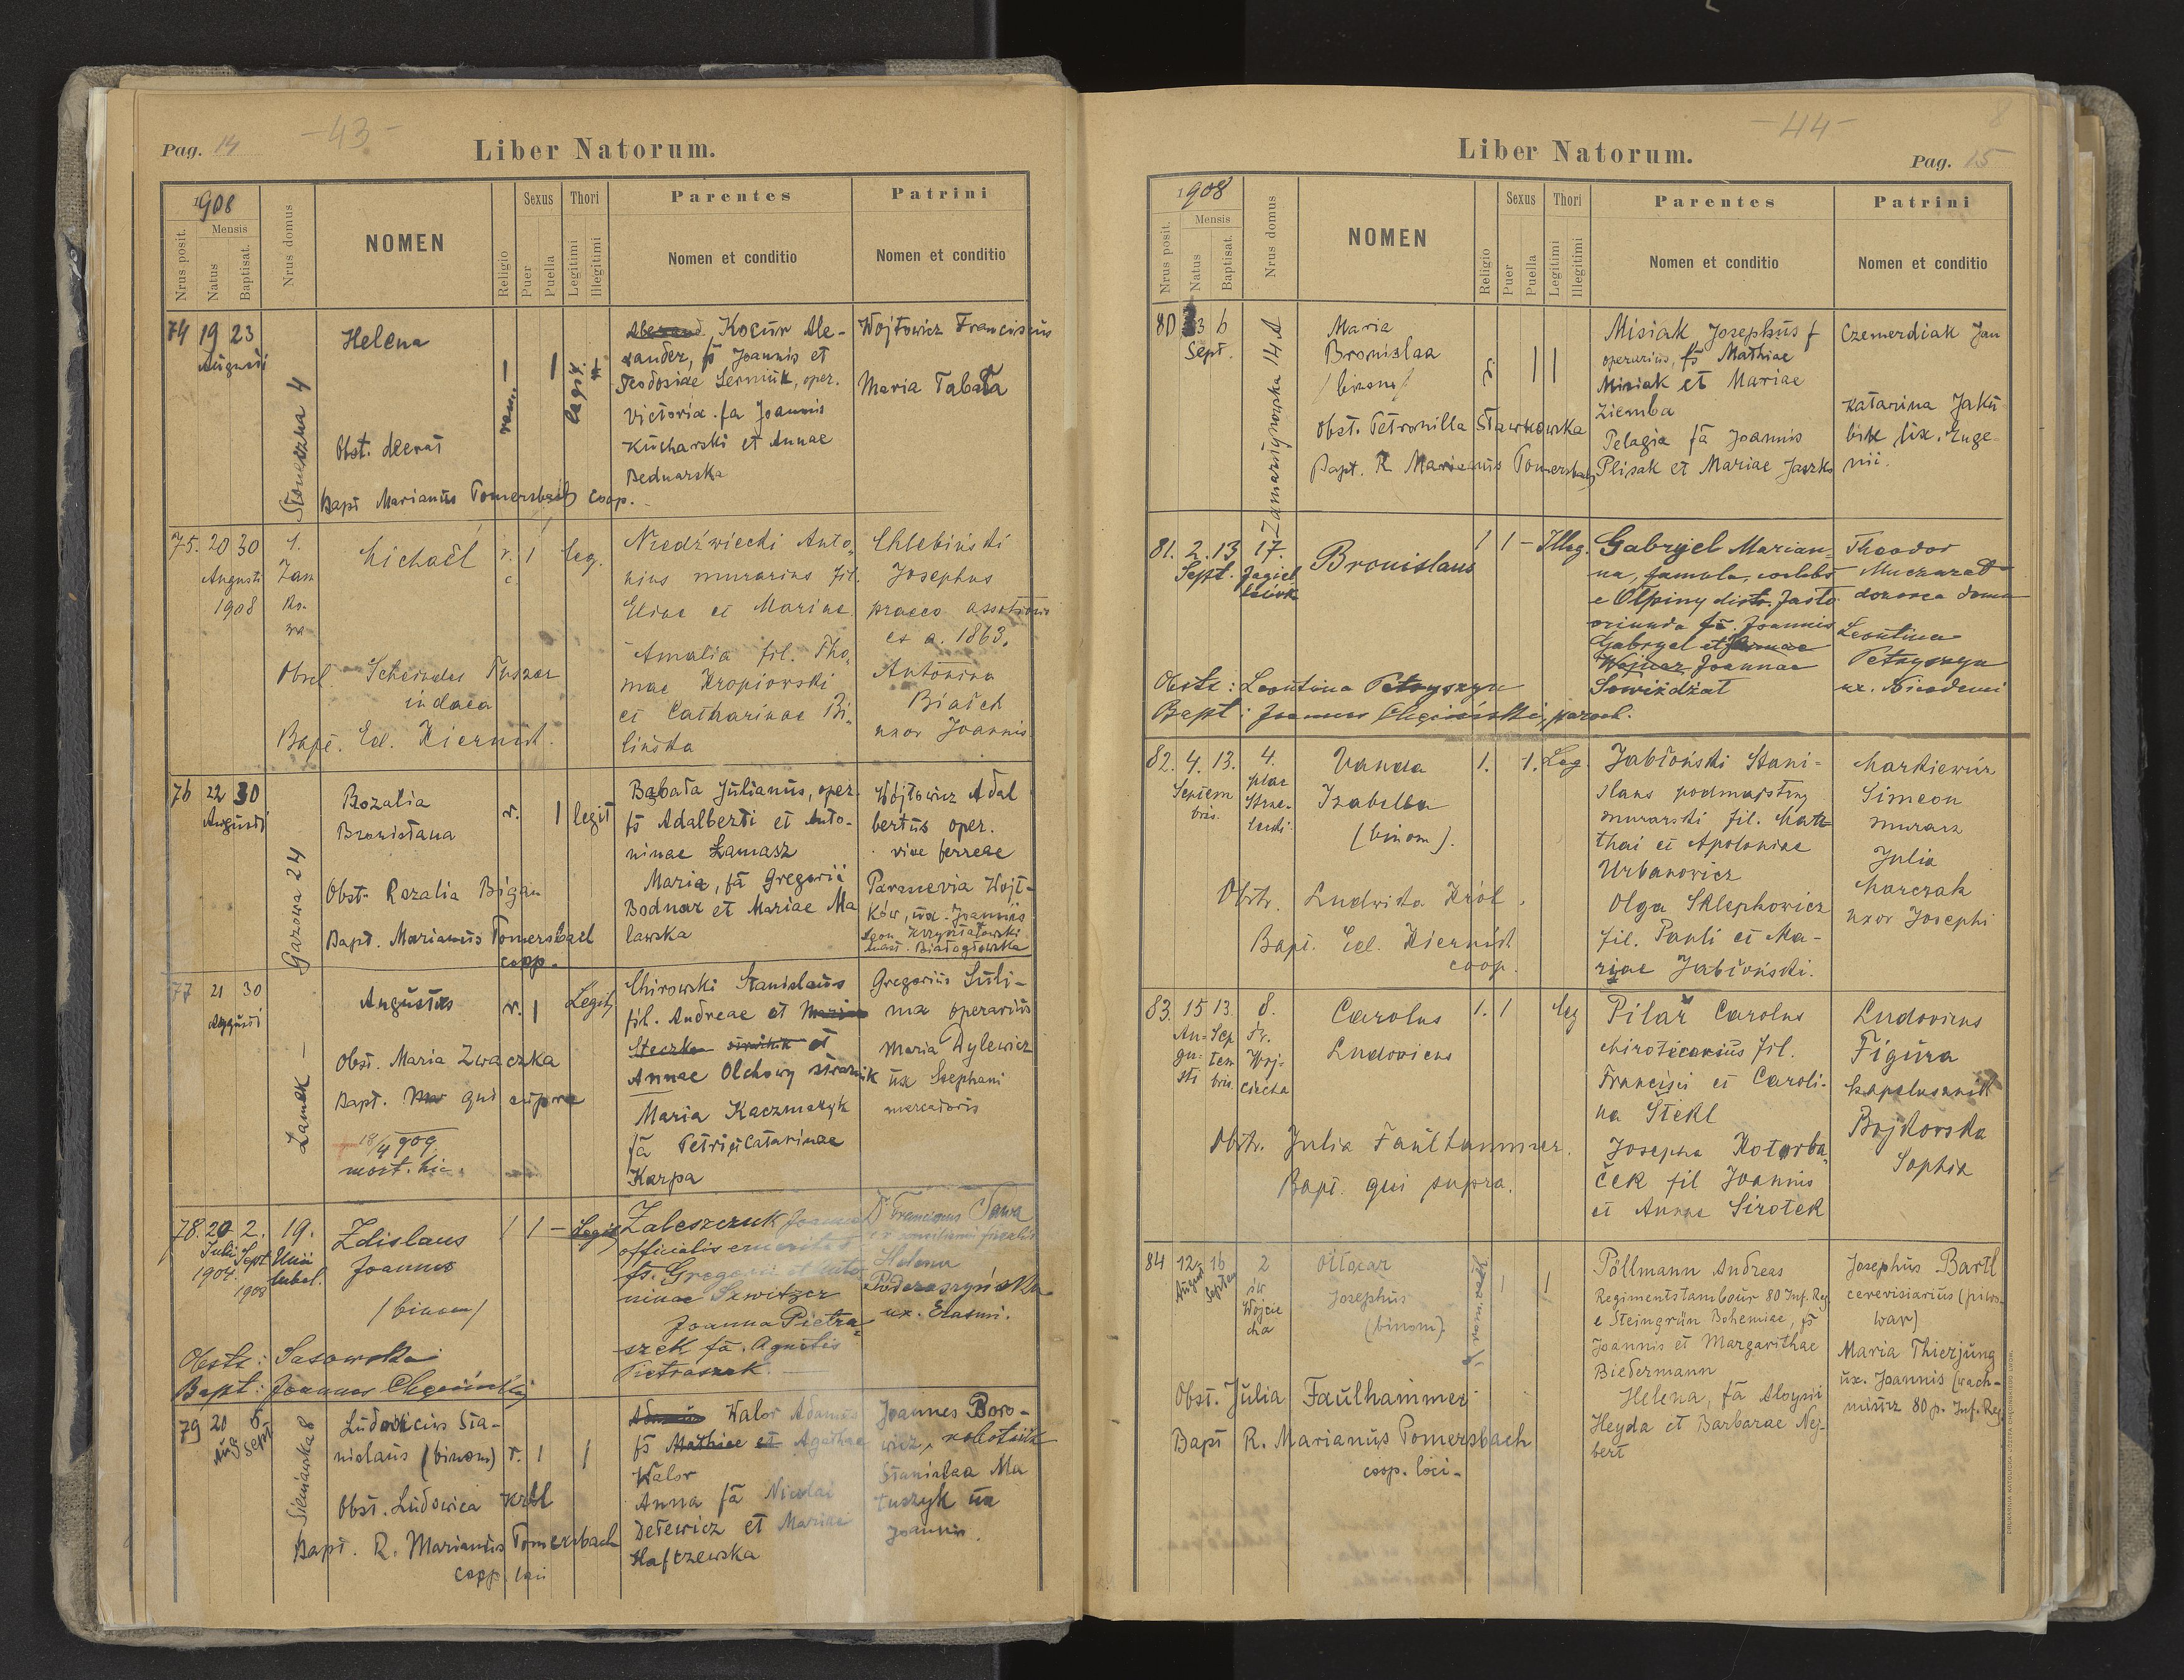 Pag. 14
-43-
Liber Natorum.
1908
Nrus posit.
Mensis
Natus
Baptisat.
Nrus domus
NOMEN
Religio
Sexus
Puer
Puella
Thori
Legitimi
Illegitimi
Parentes
Nomen et conditio
Patrini
Nomen et conditio
74 19 23
Augusti
Słoneczna 4
Helena
Obst. deerat
Bapt Marianus Tomersbach coop.
legit.
Kocur Ale-
xander, fs Joannis et
Teodosiae Serniuk, oper.
Victoria fa Joannis
Kucharski et Annae
Bednarska
Wojtowicz Franciscus
Maria Tabała
75. 20 30
Augusti
1908
1.
Zam
ko-
wa
Michaël
r.
c.
1
leg.
Obst. Scheindes Tuszer
indaea
Bapt. Ed. Kiernist.
Niedźwiecki Anto-
nius murarius fil.
Eliae et Mariae
Amalia fil. Tho-
mae Kropiowski
et Catharinae Bi-
lińska
Chlebiński
Josephus
praeco
ex a. 1863.
Antonina
Białek
uxor Joannis
76 22 30
Augusti
Gazowa 24
Rozalia
Bronislaua
r. 1 legit
Obst. Rozalia Bigan
Bapt. Marianus Tomersbach
coop.
Babała Julianus, oper.
fs Adalberti et Anto-
ninae Łamasz
Maria, fa Gregorii
Bodnar et Mariae Ma
lawska
Wojtowicz Adal
bertus oper.
viae ferreae
Paraxevia Wojt-
ków, ux. Joannis
77 21 30
Augusti
Zamek -
Augustus
r. 1
Legit
Obst. Maria Zwaczka
Bapt. qui supra
18/4 1909
mort. hic.
Chirowski Stanislaus
fil. Andreae et Maria
Steczka et
Annae Olchowy strażnik
Maria Kaczmaryk
fa Petri, Catarinae
Karpa
Gregorius Suli-
ma operarius
Maria Dylewicz
ux Stephani
mercatoris
78. 20 2.
Julii Sept
1907. 1908
19.
Unii
lubel.
Zdislaus
Joannes
/binom/
1 1 - Legit
Obstr: Sasowska
Bapt: Joannes Chęciński
Zaleszczuk Joannes
officialis emeritus
fs. Gregorii et Anto-
ninae Sawitzer
Joanna Pietra-
szek fa. Agnetis
Pietraszek.
Dr Franciscus Sawa
Helena
Poderaszyńska
ux. Erasmi.
79 20 5
Aug Sept
Sieniawska 8
Ludovicus Sta-
nislaus (binom) r. 1 1
Obst. Ludovica Król
Bapt. R. Marianus Tomersbach
coop. loci
Walor Adamus
fs Mathiae et Agathae
Walor
Anna fa Nicolai
Detewicz et Mariae
Haftzewska
Joannes Boro-
wicz, robotnik
Stanislaa Ma
tuszyk ux
Joannis.
-44-
8
Liber Natorum.
Pag. 15
1908
Nrus posit.
Mensis
Natus
Baptisat.
Nrus domus
NOMEN
Religio
Sexus
Puer
Puella
Thori
Legitimi
Illegitimi
Parentes
Nomen et conditio
Patrini
Nomen et conditio
80 3 6
Sept.
Zamarstynowska 14 A
Maria
Bronislaa
/binom/
r. 1 1
Obst. Petronilla Sławkowska
Bapt. R. Marianus Tomersbach
Misiak Josephus f
operarius, fs Mathiae
Misiak et Mariae
Ziemba
Pelagia fa Joannis
Plisak et Mariae Jaszko
Czemerdiak Jan
Katarina Jaku
bik ux. Euge-
nii.
81. 2. 13
Sept.
17.
Bronislaus
1 1 - Illeg.
Obstr: Leontina Petryszyn
Bapt: Joannes Chęciński, paroch.
Gabryel Marian-
na, famula, coelebs
e Ołpiny distr. Jasło
oriunda fa. Joannis
Gabryel et
Wojnar Joannae
Sowiźdżał
Theodor
Muczarad
dozorca domu
Leontina
Petryszyn
ux. Nicodemi
82. 4. 13.
Septem
bris.
4.
plac
Strze-
lecki.
Vanda
Izabella
(binom).
1. 1. Leg.
Obstr. Ludwika Król.
Bapt. Ed. Kiernist
coop.
Jabłoński Stani-
slaus podmajstrzy
murarski fil. Mat-
thai et Apoloniae
Urbanowicz
Olga Sklepkowicz
fil. Pauli et Ma-
riae Jabłoński.
Markiewicz
Simeon
murarz
Julia
Marczak
uxor Josephi
83. 15 13.
Au- Sep
gu- tem
sti bris.
8.
Św.
Woj-
ciecha
Carolus
Ludovicus
1. 1 leg
Obstr. Julia Faulhammer.
Bapt. qui supra.
Pilař Carolus
chirotecarius fil.
Francisci et Caroli-
na Štekl
Josepha Kotorba-
ček fil Joannis
et Annae Sirotek
Ludovicus
Figura
kapelusznik
Bojkowska
Sophia
84 12 16
August Septem
2
św
Wojcie
cha
Ottocar
Josephus
(binom).
1 1
Obst. Julia Faulhammer
Bapt R. Marianus Tomersbach
coop. loci-
Pöllmann Andreas
Regimentstambour 80 Inf. Reg.
e Steingrün Bohemiae, fs
Joannis et Margarithae
Biedermann
Helena, fa Aloysii
Heyda et Barbarae Nej-
bert
Josephus Bartl
cerevisiarius (piwo-
war)
Maria Thierjung
ux. Joannis (wach-
mistrz 80 p. Inf. Reg.